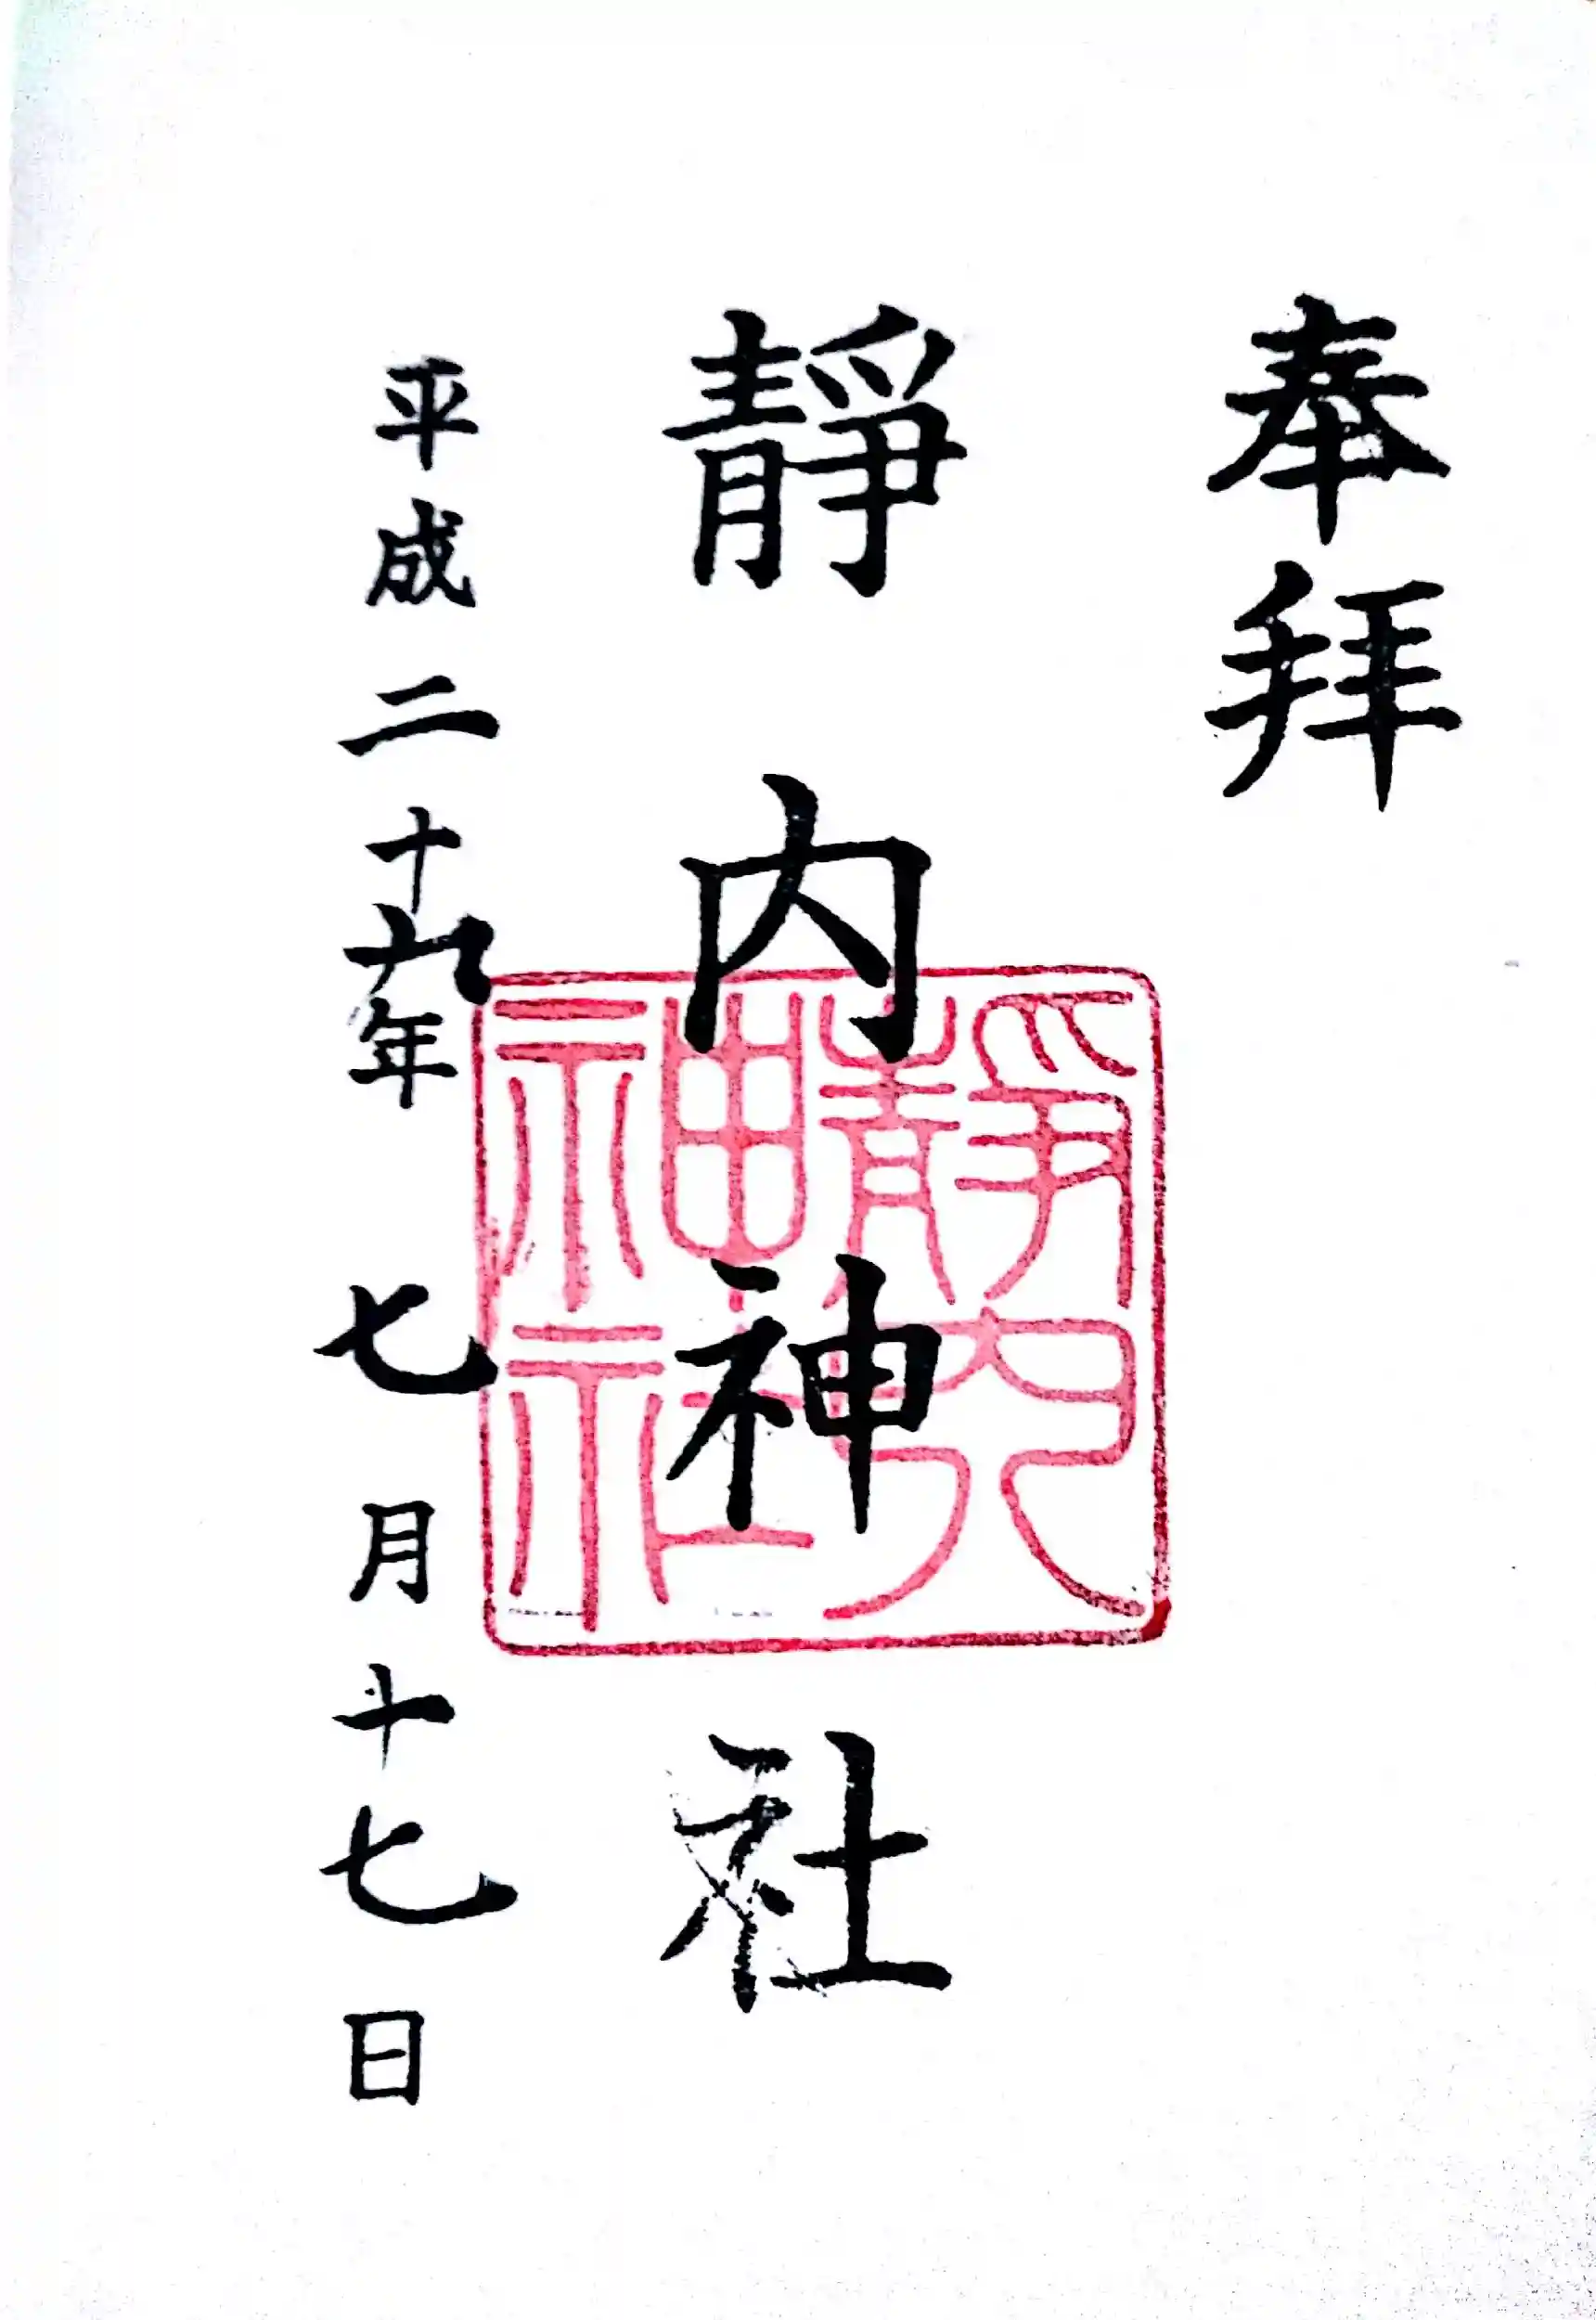 奉拝
靜内神社
靜内神社
平成二十九年 七月十七日